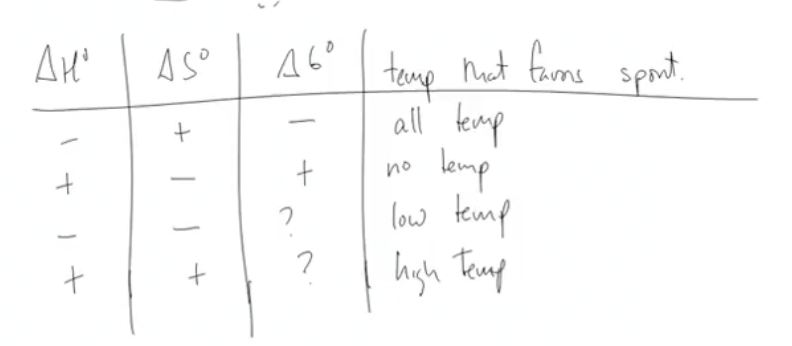 ΔH° ΔS° ΔG° temp that favors spont.
- + - all temp
+ - + no temp
- - ? low temp
+ + ? high temp